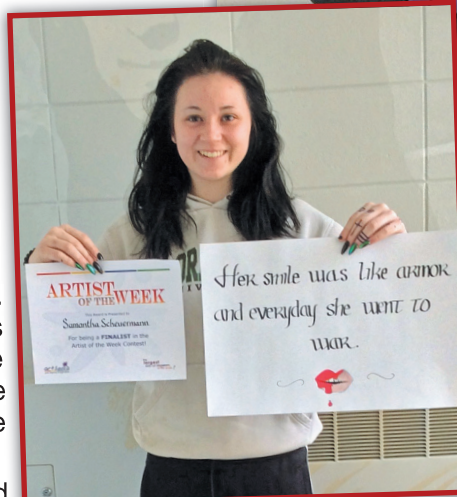 ARTIST
OF THE WEEK
This Award is Presented to
Samantha Scheuermann
For being a FINALIST in the
Artist of the Week Contest!
Her smile was like armor
and everyday she went to
war.